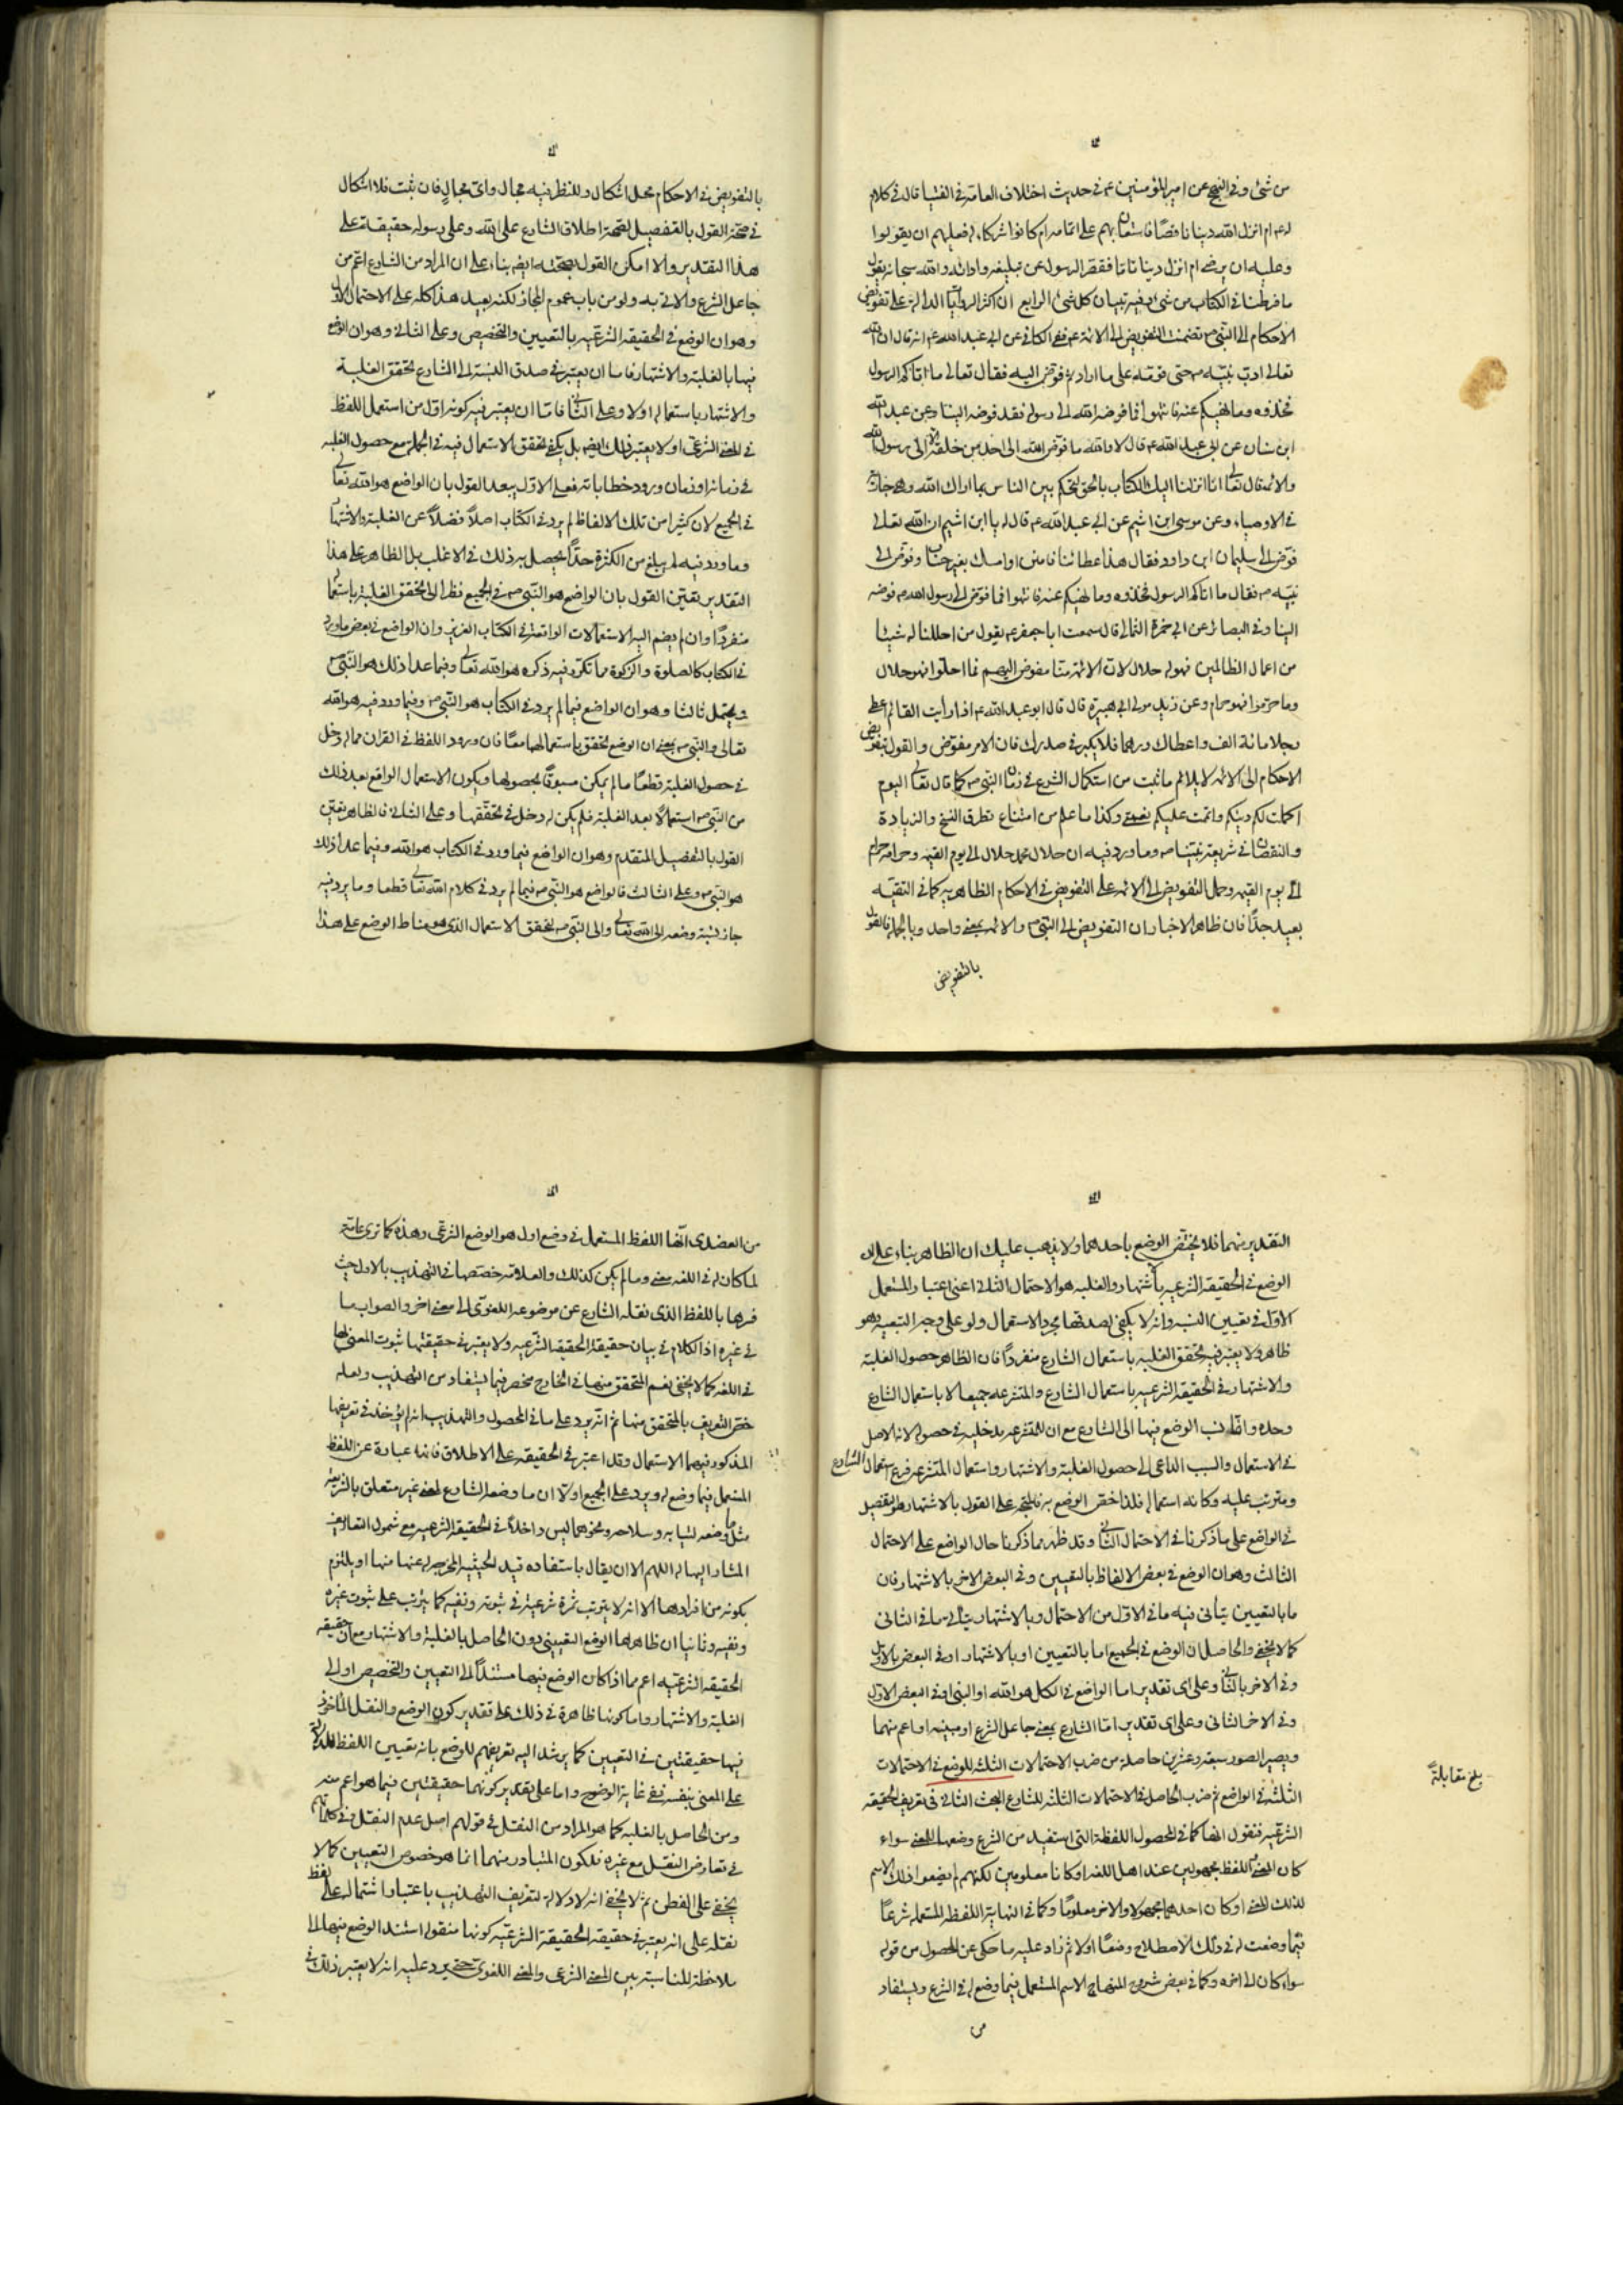 من شئ وفى النهج عن امير المؤمنين ع فى حديث اختلاف العامة فى الفتيا قال فى كلام
له ع ام انزل الله دينا ناقصًا فاستعان بهم على اتمامه ام كانوا شركاء له فعليهم ان يقولوا
وعليه ان يرضى ام انزل دينا تاما فقصر الرسول عن تبليغه وادائه والله سبحانه يقول
ما فرطنا فى الكتاب من شئ وفيه تبيان كل شئ الرابع ان اكثر الروايات الدالة على تفويض
الاحكام الى النبى ص تضمنت التفويض الى الائمة ع ففى الكافى عن ابى عبد الله ع انه قال ان الله
تعالى ادب نبيه ص حتى قومه على ما اراد ثم فوض اليه فقال تعالى ما اتاكم الرسول
فخذوه وما نهيكم عنه فانتهوا فما فوضه الله الى رسوله فقد فوضه الينا وعن عبد الله
ابن سنان عن ابى عبد الله ع قال لا والله ما فوض الله الى احد من خلقه الا الى رسول الله
والائمة قال تعالى انا انزلنا اليك الكتاب بالحق لتحكم بين الناس بما اراك الله وهى جارية
فى الاوصياء وعن موسى ابن اشيم عن ابى عبد الله ع قال له يا ابن اشيم ان الله تعالى
فوض الى سليمان ابن داود فقال هذا عطائنا فامنن او امسك بغير حساب وفوض الى
نبيه ص فقال ما اتاكم الرسول فخذوه وما نهيكم عنه فانتهوا فما فوض الى رسول الله ص فوضه
الينا وفى البصائر عن ابى حمزة الثمالى قال سمعت ابا جعفر ع يقول من احللنا له شيئا
من اعمال الظالمين فهو له حلال لان الائمة منا مفوض اليهم فما احلوا فهو حلال
وما حرموا فهو حرام وعن زيد مولى ابى هبيرة قال قال ابو عبد الله ع اذا رايت القائم اعطى
رجلا مائة الف واعطاك درهما فلا يكبر فى صدرك فان الامر مفوض والقول بتفويض
الاحكام الى الائمة لا يلائم ما ثبت من استكمال الشرع فى زمان النبى ص كما قال تعالى اليوم
اكملت لكم دينكم واتممت عليكم نعمتى وكذا ما علم من امتناع تطرق النسخ والزيادة
والنقصان فى شريعة نبينا ص وما ورد فيه ان حلال محمد حلال الى يوم القيمة وحرامه حرام
الى يوم القيمة وحمل التفويض الى الائمة على التفويض فى الاحكام الظاهرية كما فى التقية
بعيد جدًّا فان ظاهر الاخبار ان التفويض الى النبى ص والائمة بمعنى واحد وبالجملة فالقول
بالتفويض
بالتفويض فى الاحكام محل اشكال وللنظر فيه مجال واى مجال فان ثبت فلا اشكال
فى صحة القول بالتفصيل لصحة اطلاق الشارع على الله وعلى رسوله حقيقة على
هذا التقدير والا امكن القول بصحته ايضا بناء على ان المراد من الشارع اعم من
جاعل الشرع والاتى به ولو من باب عموم المجاز لكنه بعيد هذا كله على الاحتمال الاول
وهو ان الوضع فى الحقيقة الشرعية بالتعيين والتخصيص وعلى الثانى وهو ان الوضع
فيها بالغلبة والاشتهار فاما ان يعتبر فى صدق النسبة الى الشارع تحقق الغلبة
والاشتهار باستعماله اولا وعلى الثانى فاما ان يعتبر فيه كونه اول من استعمل اللفظ
فى المعنى الشرعى اولا يعتبر ذلك ايضا بل يكفى تحقق الاستعمال فيه فى الجملة مع حصول الغلبة
فى زمانه او زمان ورود خطاباته فعلى الاول يبعد القول بان الواضع هو الله تعالى
فى الجميع لان كثيرا من تلك الالفاظ لم يرد فى الكتاب اصلاً فضلاً عن الغلبة والاشتهار
وما ورد فيه لم يبلغ من الكثرة حدًّا يحصل به ذلك فى الاغلب بل الظاهر على هذا
التقدير تعين القول بان الواضع هو النبى ص فى الجميع نظرا الى تحقق الغلبة باستعماله
منفردًا وان لم يضم اليه الاستعمالات الواقعة فى الكتاب العزيز وان الواضع فى بعض ما ورد
فى الكتاب كالصلوة والزكوة مما تكرر فيه ذكره هو الله تعالى وفيما عدا ذلك هو النبى ص
ويحتمل ثالثا وهو ان الواضع فيما لم يرد فى الكتاب هو النبى ص وفيما ورد فيه هو الله
تعالى والنبى ص بمعنى ان الوضع تحقق باستعمالهما معًا فان ورود اللفظ فى القران مما له دخل
فى حصول الغلبة قطعًا ما لم يكن مسبوقًا بحصولها ويكون الاستعمال الواقع بعد ذلك
من النبى ص استعمالاً بعد الغلبة فلم يكن له دخل فى تحققها وعلى الثانى فالظاهر تعين
القول بالتفصيل المتقدم وهو ان الواضع فيما ورد فى الكتاب هو الله وفيما عدا ذلك
هو النبى ص وعلى الثالث فالواضع هو النبى ص فيما لم يرد فى كلام الله تعالى قطعا وما يرد فيه
جاز نسبة وضعه الى الله تعالى والى النبى ص لتحقق الاستعمال الذى هو مناط الوضع على هذا
التقدير منهما فلا يختص الوضع باحدهما ولا يذهب عليك ان الظاهر بناء على ان
الوضع فى الحقيقة الشرعية باشتهار والغلبة هو الاحتمال الثانى اعنى اعتبار المستعمل
الاول فى تعيين النسبة وانه لا يكفى بصدقها مجرد الاستعمال ولو على وجه التبعية وهو
ظاهر ولا يعتبر فيه تحقق الغلبة باستعمال الشارع منفردًا فان الظاهر حصول الغلبة
والاشتهار فى الحقيقة الشرعية باستعمال الشارع والمتشرعة جميعا لا باستعمال الشارع
وحده وانما نسب الوضع فيها الى الشارع مع ان للمتشرعة مدخلية فى حصوله لانه الاصل
فى الاستعمال والسبب الداعى الى حصول الغلبة والاشتهار واستعمال المتشرعة فرع استعمال الشارع
ومترتب عليه وكانه استعماله فلذا خص الوضع به فالمتجه على القول بالاشتهار هو التفصيل
فى الواضع على ما ذكرنا فى الاحتمال الثانى وقد ظهر مما ذكرنا حال الواضع على الاحتمال
الثالث وهو ان الوضع فى بعض الالفاظ بالتعيين وفى البعض الاخر بالاشتهار فان
ما بالتعيين يتاتى فيه ما فى الاول من الاحتمال وبالاشتهار يتاتى ما فى الثانى
كما لا يخفى والحاصل ان الوضع فى الجميع اما بالتعيين او بالاشتهار او فى البعض بالاول
وفى الاخر بالثانى وعلى اى تقدير اما الواضع فى الكل هو الله او النبى او فى البعض الاول
وفى الاخر الثانى وعلى اى تقدير اما الشارع بمعنى جاعل الشرع او مبينه او اعم منهما
ويصير الصور سبعة وعشرين حاصلة من ضرب الاحتمالات الثلث للوضع فى الاحتمالات
الثلثة فى الواضع ثم ضرب الحاصل فى الاحتمالات الثلثة للشارع البحث الثانى فى تعريف الحقيقة
الشرعية فنقول انها كما فى المحصول اللفظة التى استفيد من الشرع وضعها للمعنى سواء
كان المعنى واللفظ مجهولين عند اهل اللغة او كانا معلومين لكنهم لم يضعوا ذلك الاسم
لذلك المعنى او كان احدهما مجهولا والاخر معلومًا وكما فى النهاية اللفظة المستعملة شرعًا
فيما وضعت له فى ذلك الاصطلاح وضعًا اولا ثم زاد عليه ما حكى عن المحصول من قوله
سواء كان الى اخره وكما فى بعض شروح المنهاج الاسم المستعمل فيما وضع له فى الشرع ويستفاد
من
بلغ مقابلةً
من العضدى انها اللفظ المستعمل فى وضع اول هو الوضع الشرعى وهذه كما ترى عامة
لما كان له فى اللغة معنى وما لم يكن كذلك والعلامة خصصها فى التهذيب بالاول حيث
فسرها باللفظ الذى نقله الشارع عن موضوعه اللغوى الى معنى اخر والصواب ما
فى غيره اذ الكلام فى بيان حقيقة الحقيقة الشرعية ولا يعتبر فى حقيقتها ثبوت المعنى لها
فى اللغة كما لا يخفى نعم المتحقق منها فى الخارج منحصر فيما يستفاد من التهذيب ولعله
خص التعريف بالمتحقق منها ثم انه يرد على ما فى المحصول والتهذيب انه لم يؤخذ فى تعريفها
المذكور فيهما الاستعمال وقد اعتبر فى الحقيقة على الاطلاق فانه عبارة عن اللفظ
المستعمل فيما وضع له ويرد على الجميع اولا ان ما وضعه الشارع لمعنى غير متعلق بالشريعة
مثل ما وضعه لثيابه وسلاحه ونحوهما ليس داخلاً فى الحقيقة الشرعية مع شمول التعاريف
المشار اليها له اللهم الا ان يقال باستفاده قيد الحيثية المخرجة له عنها منها او يلتزم
بكونه من افرادها الا انه لا يترتب ثمرة شرعية فى ثبوته ونفيه كما يترتب على ثبوت غيره
ونفيه وثانيا ان ظاهرها الوضع التعيينى دون الحاصل بالغلبة والاشتهار مع ان حقيقة
الحقيقة الشرعية اعم مما اذا كان الوضع فيها مستندًا الى التعيين والتخصيص او الى
الغلبة والاشتهار واما كونها ظاهرة فى ذلك على تقدير كون الوضع والنقل الماخوذ
فيها حقيقتين فى التعيين كما يرشد اليه تعريفهم للوضع بانه تعيين اللفظ للدلالة
على المعنى بنفسه ففى غاية الوضوح واما على تقدير كونهما حقيقتين فيما هو اعم منه
ومن الحاصل بالغلبة كما هو المراد من النقل فى قولهم اصل عدم النقل وفى كلماتهم
فى تعارض النقل مع غيره فلكون المتبادر منهما انما هو خصوص التعيين كما لا
يخفى على الفطن ثم لا يخفى انه لا دلالة لتعريف التهذيب باعتبار اشتماله على لفظ
نقله على انه يعتبر فى حقيقة الحقيقة الشرعية كونها منقولة استند الوضع فيها الى
ملاحظة المناسبة بين المعنى الشرعى والمعنى اللغوى حتى يرد عليه انه لا يعتبر ذلك فى